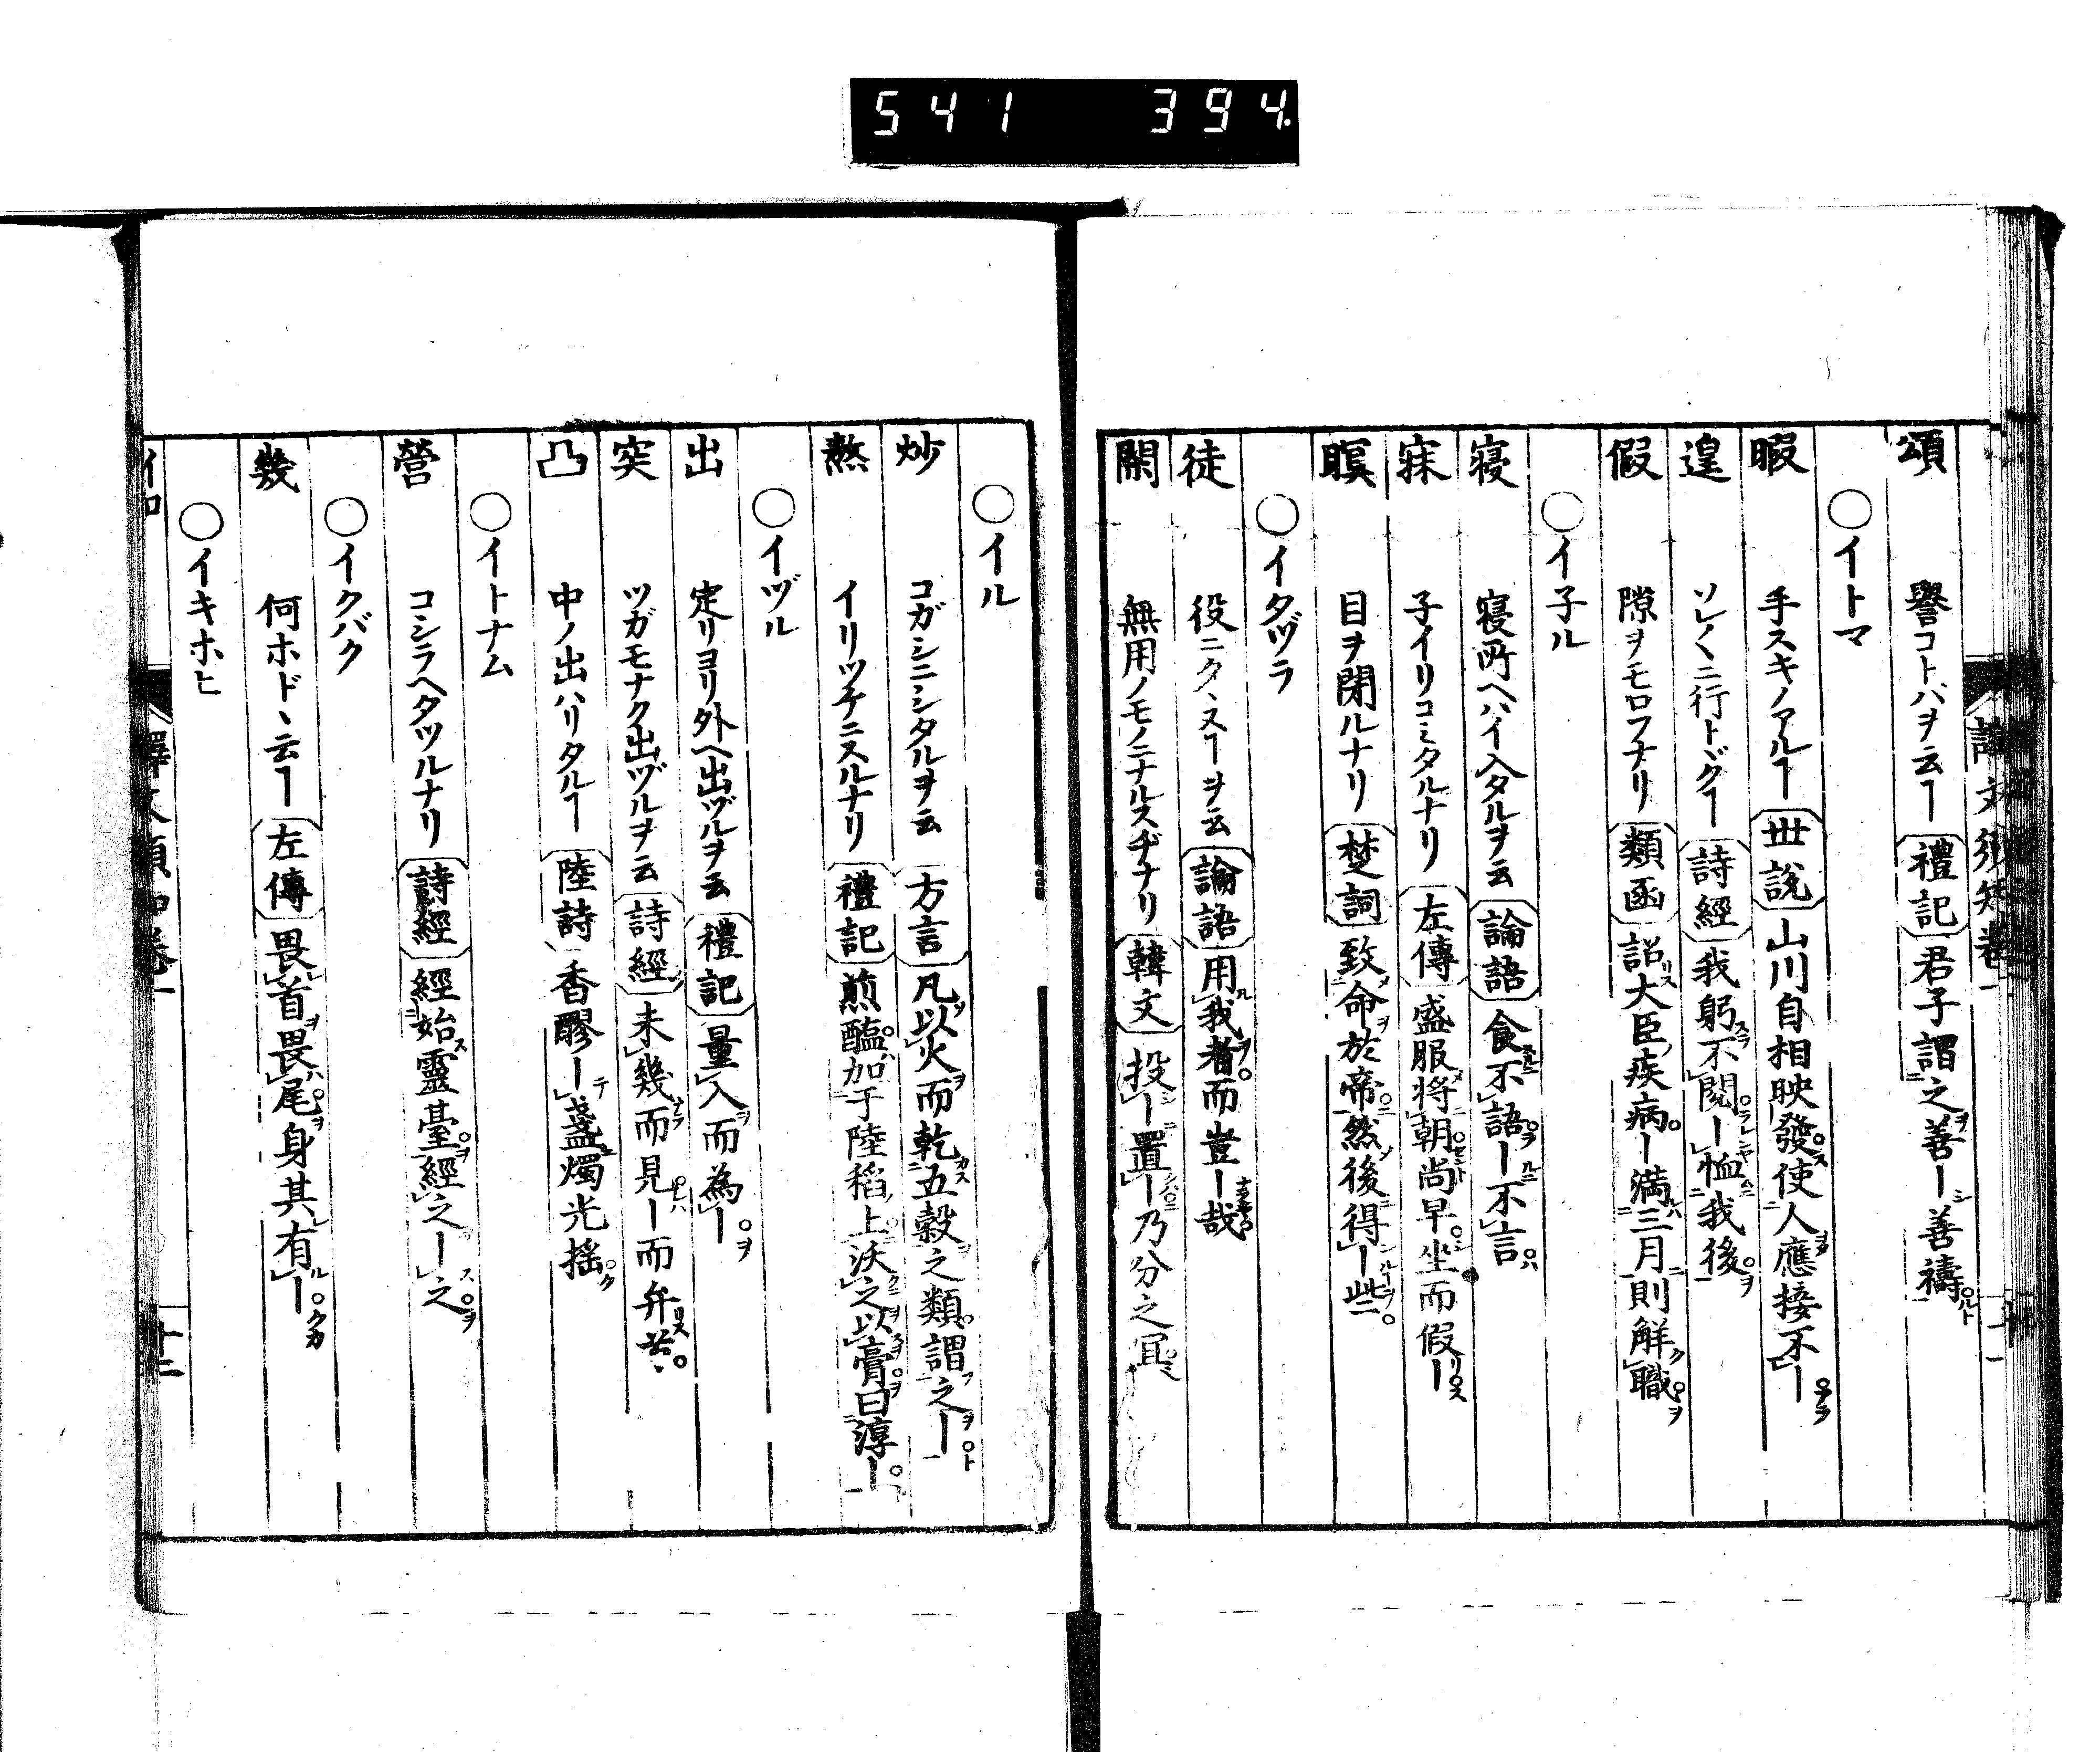 541 394.
頌 譽コトバヲ云ヿ 禮記 君子謂之善ー善禱
○イトマ
暇 手スキノアルヿ 世說 山川自相映發使人應接不ー
遑 ソレ〱ニ行トヾクヿ 詩經 我躬不閱ー恤我後
假 隙ヲモロフナリ 類函 詔大臣疾病ー滿三月則解職
○イ子ル
寝 寝所ヘハイ入タルヲ云 論語 食不語ー不言
寐 子イリコミタルナリ 左傳 盛服將朝尚早坐而假ー
瞑 目ヲ閉ルナリ 楚詞 致命於帝然後得ー些
○イタヅラ
徒 役ニタヽヌヿヲ云 論語 用我者而豈ー哉
閑 無用ノモノニナルスヂナリ 韓文 投ー置ー乃分之冝
○イル
炒 コガシニシタルヲ云 方言 凡以火而乾五穀之類謂之ー
熬 イリツケニスルナリ 禮記 煎醢加于陸稻上沃之以膏曰淳ー
○イヅル
出 定リヨリ外ヘ出ヅルヲ云 禮記 量入而為ー
突 ツガモナク出ヅルヲ云 詩經 未幾而見ー而弁
凸 中ノ出ハリタルヿ 陸詩 香醪ー盞燭光搖
○イトナム
營 コシラヘタツルナリ 詩經 經始靈臺經之ー之
○イクバク
幾 何ホドヽ云ヿ 左傳 畏首畏尾身其有ー
○イキホヒ
十二